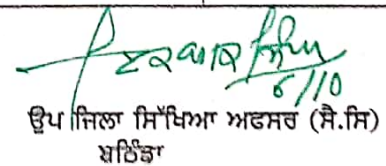 6/10
ਉਪ ਜਿਲਾ ਸਿੱਖਿਆ ਅਫਸਰ (ਸੈ.ਸਿ)
ਬਠਿੰਡਾ